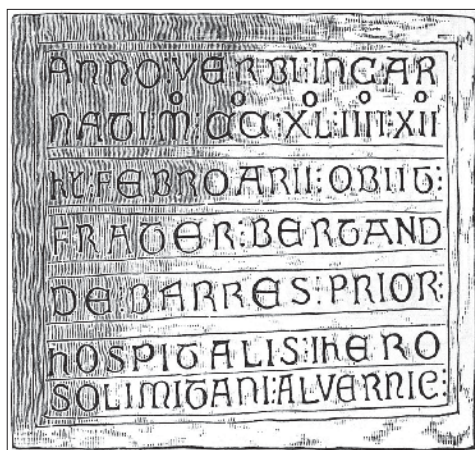 ANNO:VERBI:INCAR
NATI:M°:CC°:XL°:IIII°:XII°
KL:FEBROARII:OBIIT:
FRATER:BERTAND
DE:BARRES:PRIOR:
HOSPITALIS:IHERO
SOLIMITANI:ALVERNIE: